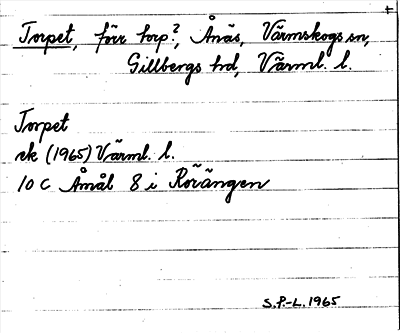 Torpet, förr torp?, Ånäs, Värmskogs sn,
Gillbergs hd, Värml. l.
Torpet
ek (1965) Värml. l.
10 C Åmål 8 i Rörängen
S.P.-L. 1965